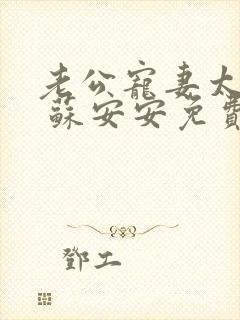 老公寵妻太
蘇安安免費
鄧工